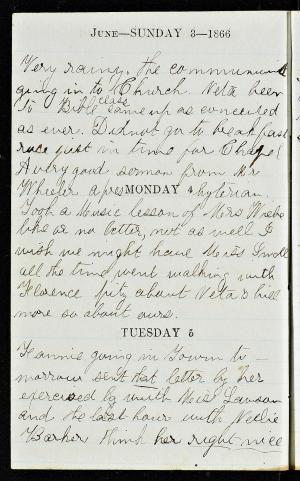 JUNE—SUNDAY 3—1866
Very rainy, the communion
going in to Church. Veta been
to Bible class came up as conceited
as ever. Did not go to breakfast
race just in time for Chapel
A very good sermon from Mr
Wheeler a pres MONDAY 4 byterian.
Took a Music lesson of Miss
like or no better, not as well I
wish we might have Miss
all the time went walking with
Florence pity about Veta's bill
more so about ours.
TUESDAY 5
Fannie going in Town to-
morrow sent that letter by her
exercised by with Miss Lawson
and the last hour with Nellie
Barker think her right nice